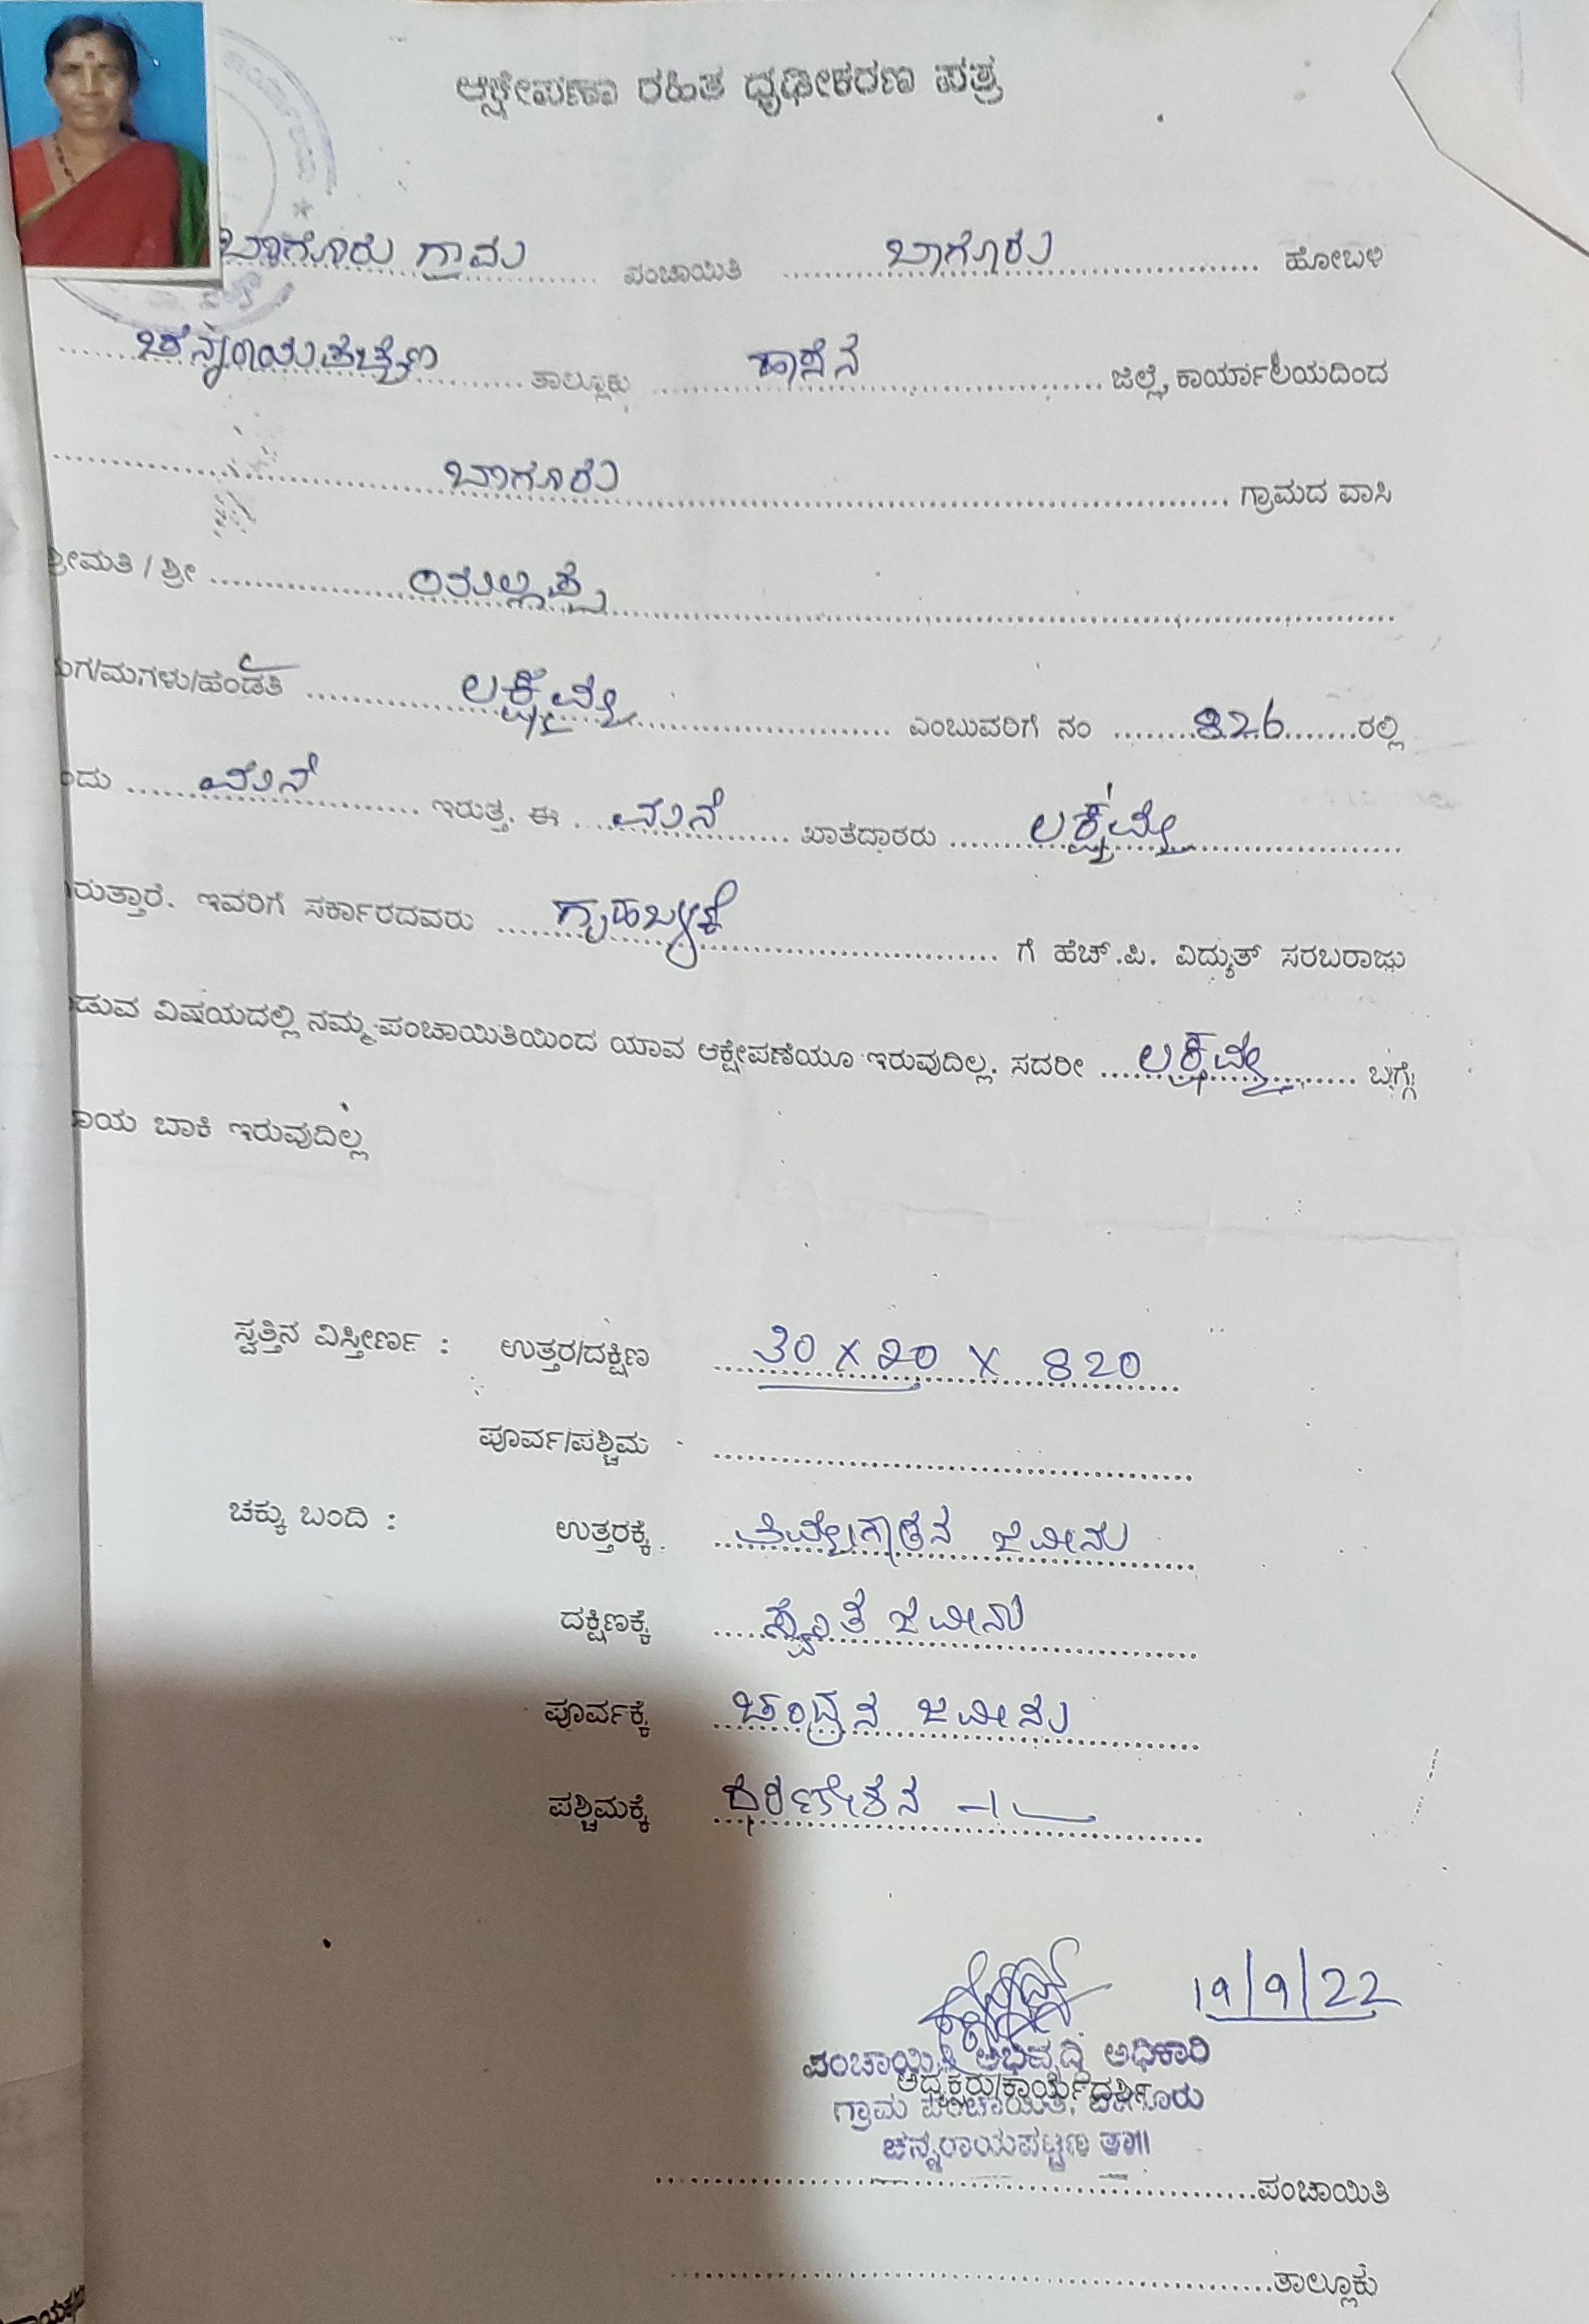 ಆಕ್ಷೇಪಣಾ ರಹಿತ ಧೃಢೀಕರಣ ಪತ್ರ
ಬಾಗೂರು ಗ್ರಾಮ ಪಂಚಾಯಿತಿ ಬಾಗೂರು ಹೋಬಳಿ
ಚನ್ನರಾಯಪಟ್ಟಣ ತಾಲ್ಲೂಕು ಹಾಸನ ಜಿಲ್ಲೆ, ಕಾರ್ಯಾಲಯದಿಂದ
ಬಾಗೂರು ಗ್ರಾಮದ ವಾಸಿ
ಶ್ರೀಮತಿ / ಶ್ರೀ
ಮಗ/ಮಗಳು/ಹೆಂಡತಿ ಲಕ್ಷ್ಮಮ್ಮ ಎಂಬುವರಿಗೆ ನಂ 826 ರಲ್ಲಿ
ಮನೆ ಇರುತ್ತ. ಈ ಮನೆ ಖಾತೆದಾರರು ಲಕ್ಷ್ಮಮ್ಮ
ಇವರಿಗೆ ಸರ್ಕಾರದವರು ಗೃಹಬಳಕೆ ಗೆ ಹೆಚ್.ಪಿ. ವಿದ್ಯುತ್ ಸರಬರಾಜು
ವಿಷಯದಲ್ಲಿ ನಮ್ಮ ಪಂಚಾಯಿತಿಯಿಂದ ಯಾವ ಆಕ್ಷೇಪಣೆಯೂ ಇರುವುದಿಲ್ಲ. ಸದರೀ ಲಕ್ಷ್ಮಮ್ಮ ಬಗ್ಗೆ
ಬಾಕಿ ಇರುವುದಿಲ್ಲ
ಸ್ವತ್ತಿನ ವಿಸ್ತೀರ್ಣ : ಉತ್ತರ/ದಕ್ಷಿಣ 30 X 20 X 820
ಪೂರ್ವ/ಪಶ್ಚಿಮ
ಚಕ್ಕು ಬಂದಿ : ಉತ್ತರಕ್ಕೆ ಜಮೀನು
ದಕ್ಷಿಣಕ್ಕೆ ಸ್ವಂತ ಜಮೀನು
ಪೂರ್ವಕ್ಕೆ ಚಂದ್ರನ ಜಮೀನು
ಪಶ್ಚಿಮಕ್ಕೆ
19/9/22
ಪಂಚಾಯಿತಿ ಅಭಿವೃದ್ಧಿ ಅಧಿಕಾರಿ
ಅಧ್ಯಕ್ಷರು/ಕಾರ್ಯದರ್ಶಿ
ಗ್ರಾಮ ಪಂಚಾಯಿತಿ, ಬಾಗೂರು
ಚನ್ನರಾಯಪಟ್ಟಣ ತಾ॥
ಪಂಚಾಯಿತಿ
ತಾಲ್ಲೂಕು